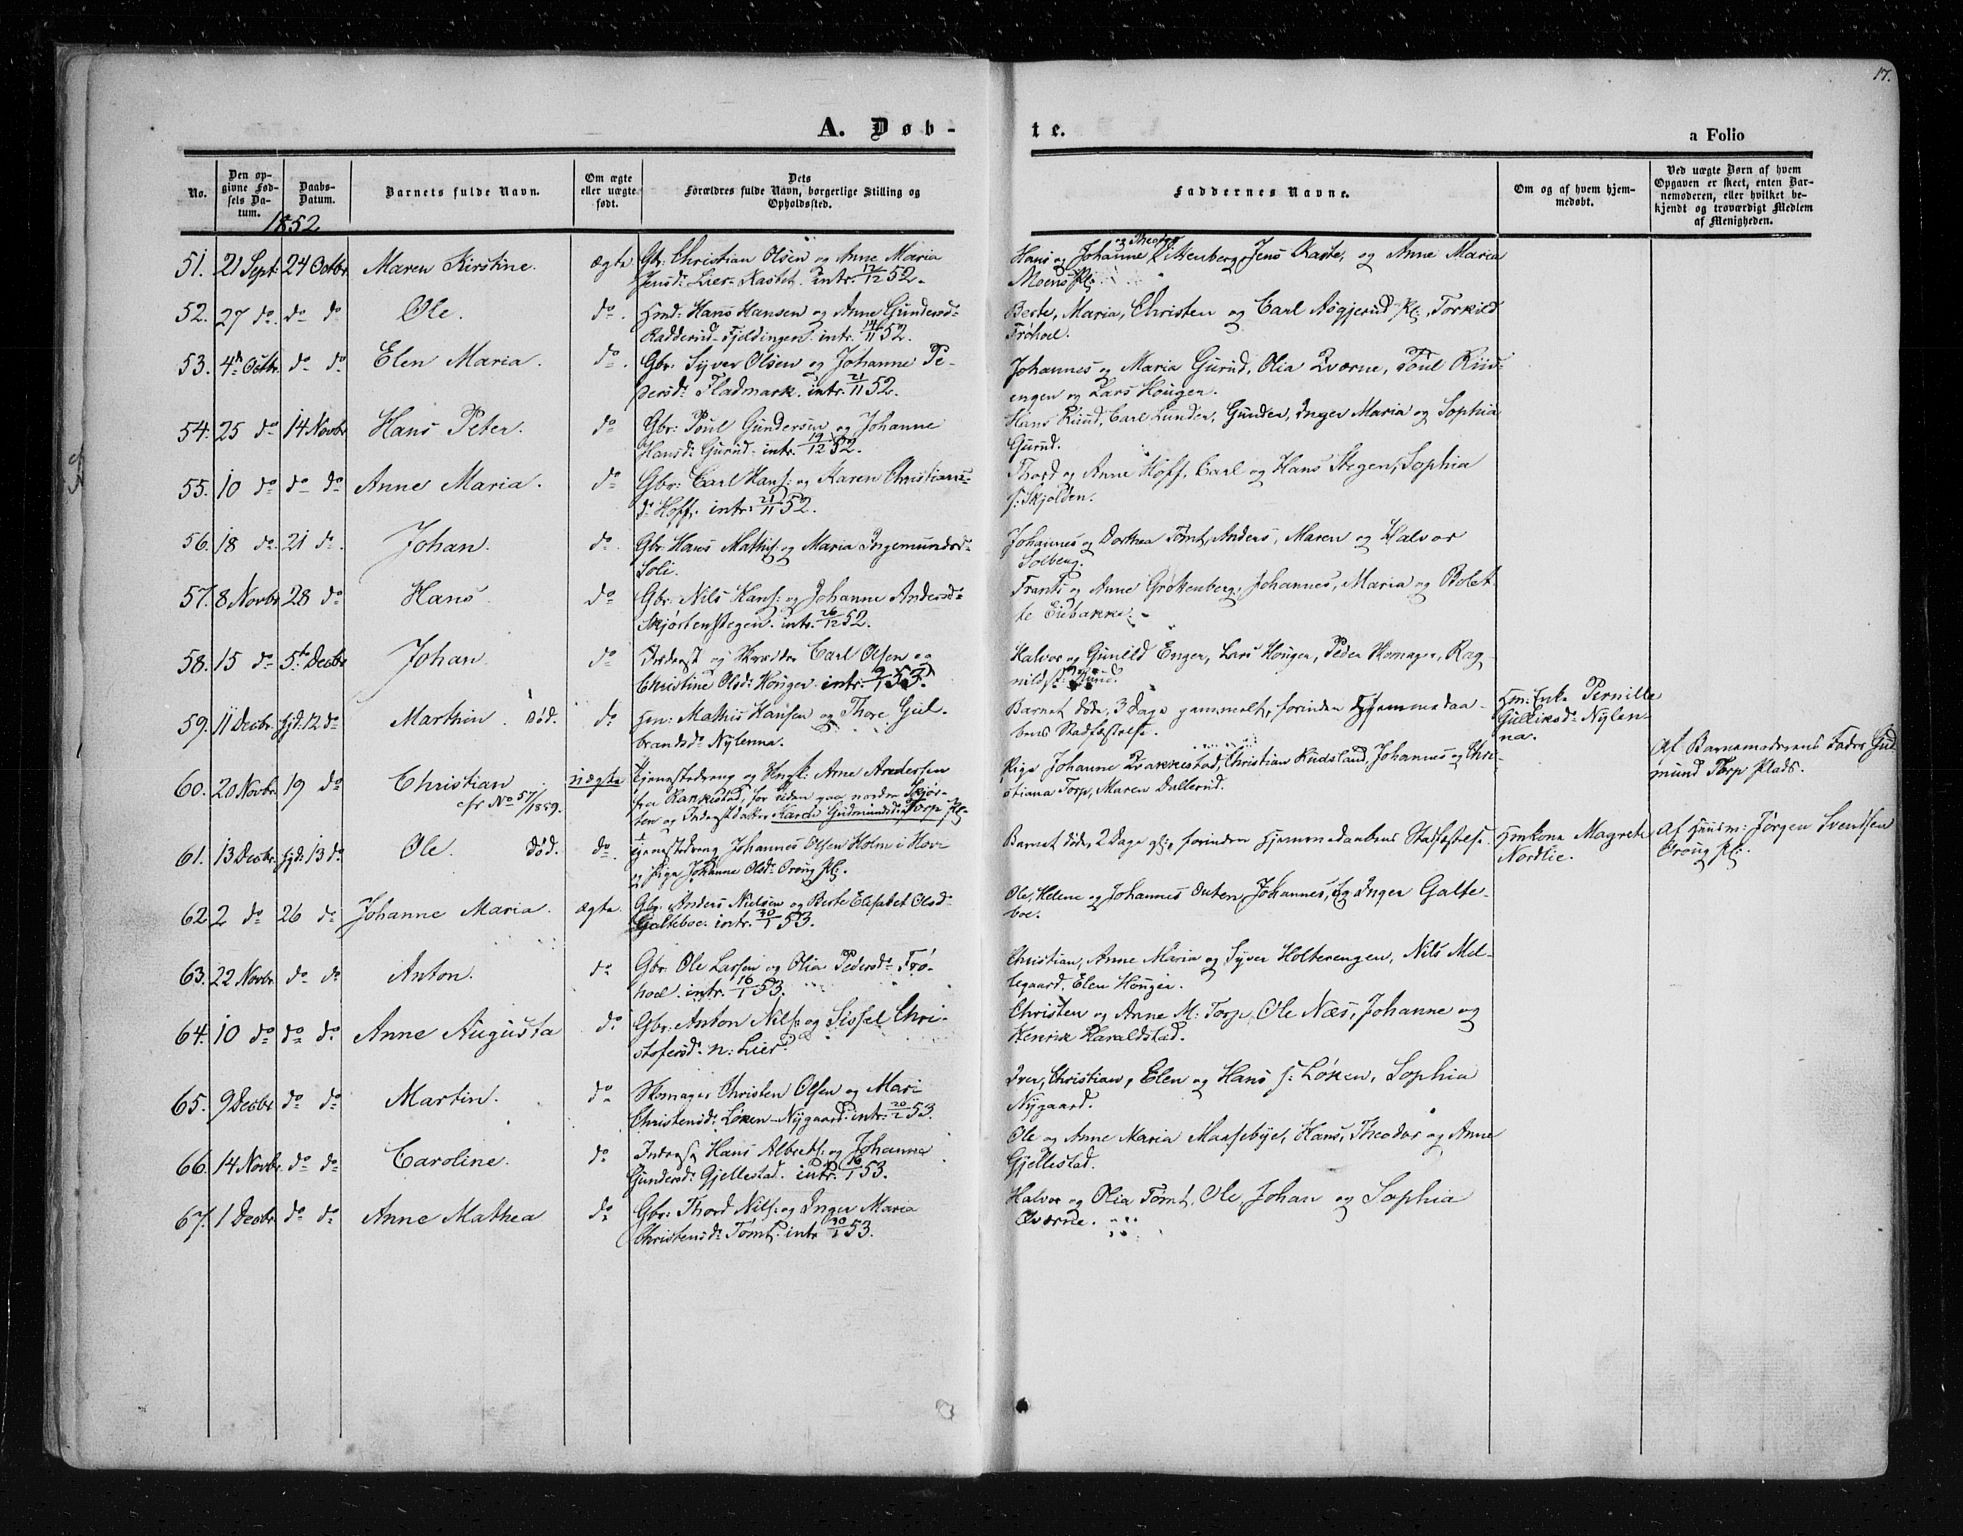 17.
A. Døb-
te.
a Folio
No.
Den op-
givne Fød-
sels Da-
tum.
Daabs-
Datum.
Barnets fulde Navn.
Om ægte
eller uægte
født.
Dets
Forældres fulde Navn, borgerlige Stilling og
Opholdssted.
Faddernes Navne.
Om og af hvem hjem-
medøbt.
Ved uægte Børn af hvem
Opgaven er skeet, enten Bar-
nemoderen, eller hvilket be-
kjendt og troværdigt Medlem
af Menigheden.
1852
51. 21 Sept. 24 Octbr. Maren Kirstine. ægte Gbr. Christian Olsen og Anne Maria
Jensd. Lier-Kastet. intr. 12/12 52.
Hans og Johanne og Theodor Jens Kaste, og Anne Maria
Moens Pl:
52. 27 do. do do Ole. do. Hmd: Hans Hansen og Anne Gundersd-
Radderud-Fjeldingen intr. 14/11 52.
Berte, Maria, Christen og Carl Aøgjerud Pl:, Torkild
Frøhoel.
53. 4de Octbr. do do Elen Maria. do. Gbr: Syver Olsen og Johanne Pe-
dersd: Fladmark. intr. 21/11 52.
Johannes og Maria Gurud, Olia Qværne, Poul Riis-
engen og Lars Hougen.
54. 25 do 14 Novbr Hans Peter. do Gbr: Poul Gundersen og Johanne
Hansd: Gurud. intr. 19/12 52.
Hans Ruud, Carl Lunder, Gunder, Inger Maria og Sophia
Gurud.
55. 10 do do do Anne Maria. do Gbr: Carl Hans: og Karen Christians-
d: Hoff. intr: 21/11 52.
Thord og Anne Hoff, Carl og Hans Stegen, Sophia
s: Skjolden.
56. 18 do 21 do. Johan. do. Gbr: Hans Mathis: og Maria Ingemundsd-
Soli.
Johannes og Dorthea Tømt, Anders, Maren og Halvor
Solberg.
57. 8 Novbr 28 do Hans. do Gbr: Nils Hans: og Johanne Andersd-
Skjørtenstegen. intr. 26/12 52.
Frants og Anne Grøtenberg, Johannes, Maria og Bolet-
te Eibakke.
58. 15 do 5te Decbr Johan. do Inderst og Skræder Carl Olsen og
Christine Olsd: Hougen. intr. 2/1 53.
Halvor og Gunild Enger, Lars Hougen, Peder Skomager, Rag-
nild Ruud.
59. 11 Decbr. hjd: 12 do Marthin. død. do Hm: Mathis Hansen og Thore Gul-
brandsd: Nylenna.
Barnet døde, 3 Dage gammelt, forinden Hjemmedaa-
bens Stadfæstelse.
Hm: Enke Pernille
Gulliksd: Nylen-
na.
60. 20 Novbr. 19 do Christian
cfr No 57/1859.
uægte Tjenestedreng og Ungk: Arne Andersen
fra Rankestad, for tiden paa nordre Skjør-
ten og Inderstdatter Kari Gudmundsd: Torp Pl:
Pige Johanne Kvakkestad, Christian Rudsland, Johannes og Chri-
stiana Torp, Maren Dallerud.
Af Barnemoderens Fader Gud-
mund Torp Plads.
61. 13 Decbr. hjd: 13 do. Ole. død. do. Tjenestedreng Johannes Olsen Holm i Hove
og Pige Johanne Olsd: Oroug Pl:
Barnet døde, 2 Dage gl:, forinden Hjemmedaabens Stadfæstelse.
Hmkona Magrete
Nordlie.
Af Huusm: Jørgen Svendsen
Oroug Pl:
62. 2 do 26 do Johanne Maria. ægte. Gbr: Anders Nielsen og Berte Elisabet Olsd:
Galteboe. intr. 30/1 53.
Ole, Helene og Johannes Outen, Johannes, Eg Inger Galte-
boe.
63. 22 Novbr. do do Anton. do Gbr. Ole Larsen og Olia Pedersd: Frø-
hoel. intr. 16/1 53.
Christian, Anne Maria og Syver Holterengen, Nils Mel-
legaard, Elen Hougen.
64. 10 do do do. Anne Augusta do Gbr: Anton Nils: og Sissel Chri-
stofersd: n: Lier.
Christen og Anne M: Torp, Ole Næs, Johanne og
Henrik Haraldstad.
65. 9 Decbr. do do Martin. do Skomager Christen Olsen og Mari
Christensd: Løken-Nygaard. intr. 20/2 53.
Iver, Christian, Elen og Hans s: Løken, Sophia
Nygaard.
66. 14 Novbr. do do Caroline. do Inderst Hans Albrets: og Johanna
Gundersd: Gjellestad. intr. 16/1 53.
Ole og Anne Maria Maasebye, Hans, Theodor og Anne
Gjellestad.
67. 1 Decbr. do do Anne Mathea do Gbr: Thord Nils: og Inger Maria
Christensd: Tømt. intr 30/1 53.
Halvor og Olia Tømt, Ole, Johan og Sophia
Qværne.